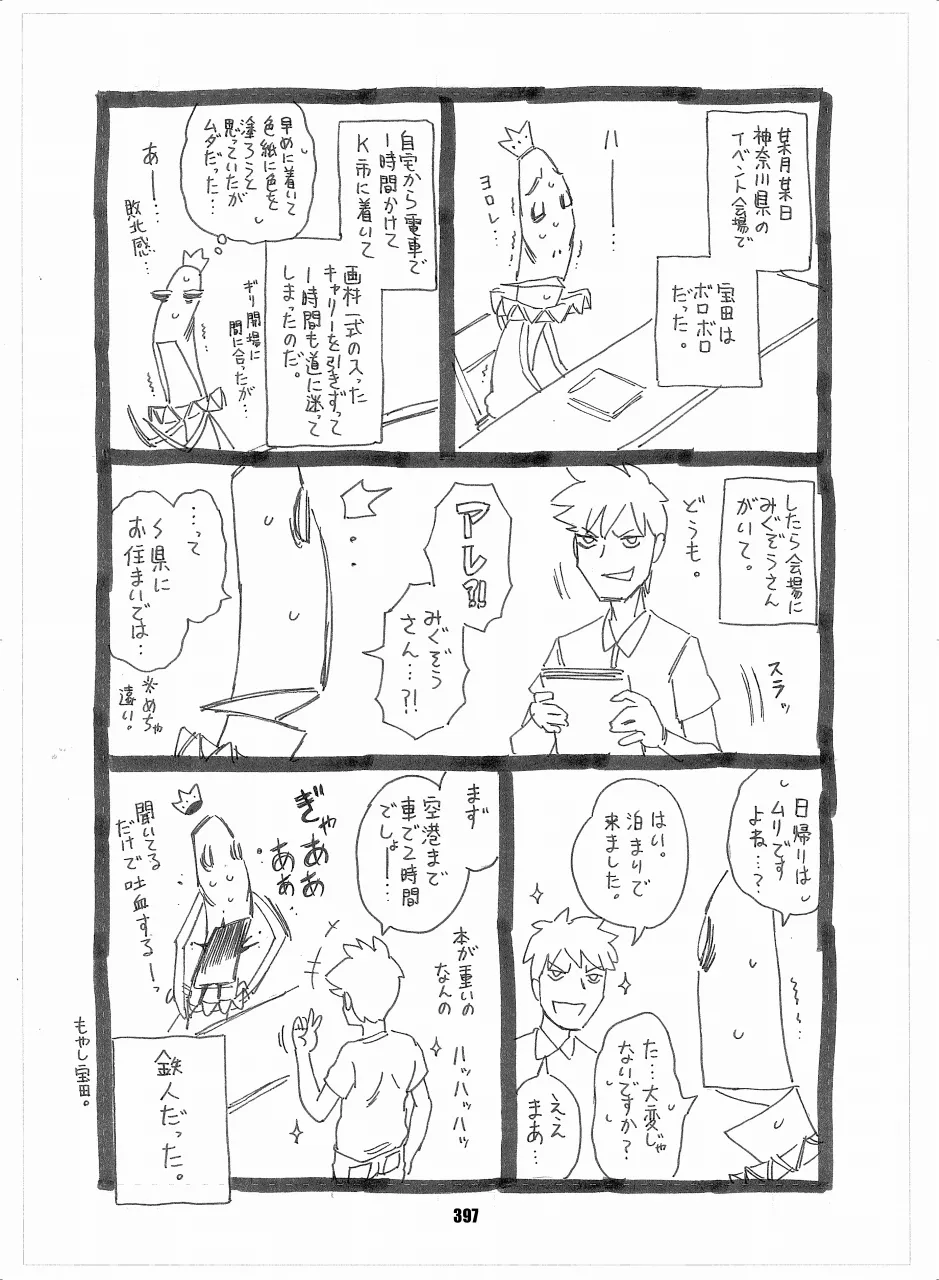 某月某日
神奈川県の
イベント会場で
宝田は
ボロボロ
だった。
ハー…
ヨロレ…
自宅から電車で
1時間かけて
K市に着いて
画材一式の入った
キャリーを引きずって
1時間も道に迷って
しまったのだ。
早めに着いて
色紙に色を
塗ろうと
思っていたが
ムダだった…
あー…
敗北感…
ギリ開場に
間に合ったが…
したら会場に
みぐぞうさん
がいて。
どうも。
スラッ
アレ?!
みぐぞう
さん…?!
…って
S県に
お住まいでは…
※めちゃ
遠い。
日帰りは
ムリです
よね…?
はい。
泊まりで
来ました。
た…大変じゃ
ないですか?
ええ
まあ…
まず
空港まで
車で2時間
でしょー…
本が重いの
なんの
ハッハッハッ
ぎゃああ
ああぁ
聞いてる
だけで吐血するーっ
鉄人だった。
もやし宝田。
397